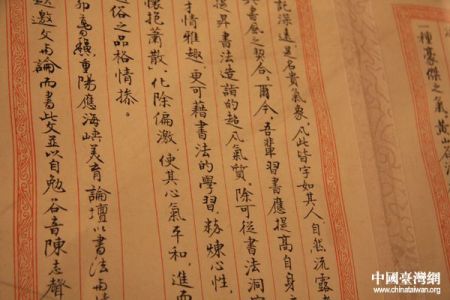 一種豪傑之氣,黃山谷
記深遠,是名貴氣象。凡此皆字如其人,自然流露
與書風之契合。爾今,吾輩習書應提高自身
提昇書法造詣的超凡氣質,除可從書法洞
才情雅趣,更可藉書法的學習,粹煉心性,
懷抱蕭散,化除偏激,使其心氣平和,進而
俗之品格情操。
卯 重陽應海峽美育論壇以書法
邀文 論而書此文並以自勉 谷音陳志聲
中國臺灣網
www.chinataiwan.org